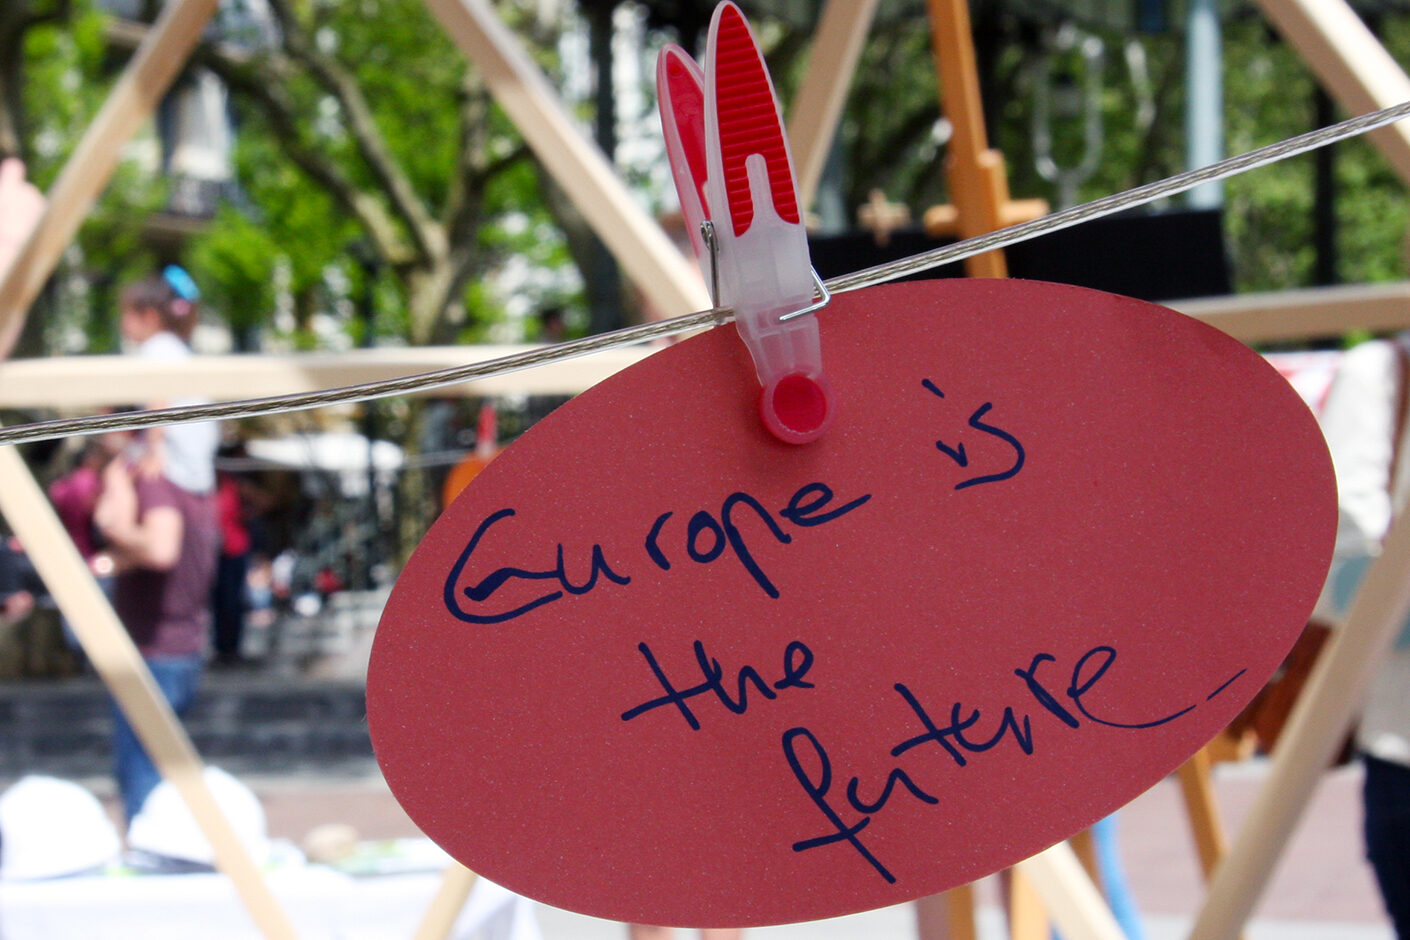 Europe is
the
future